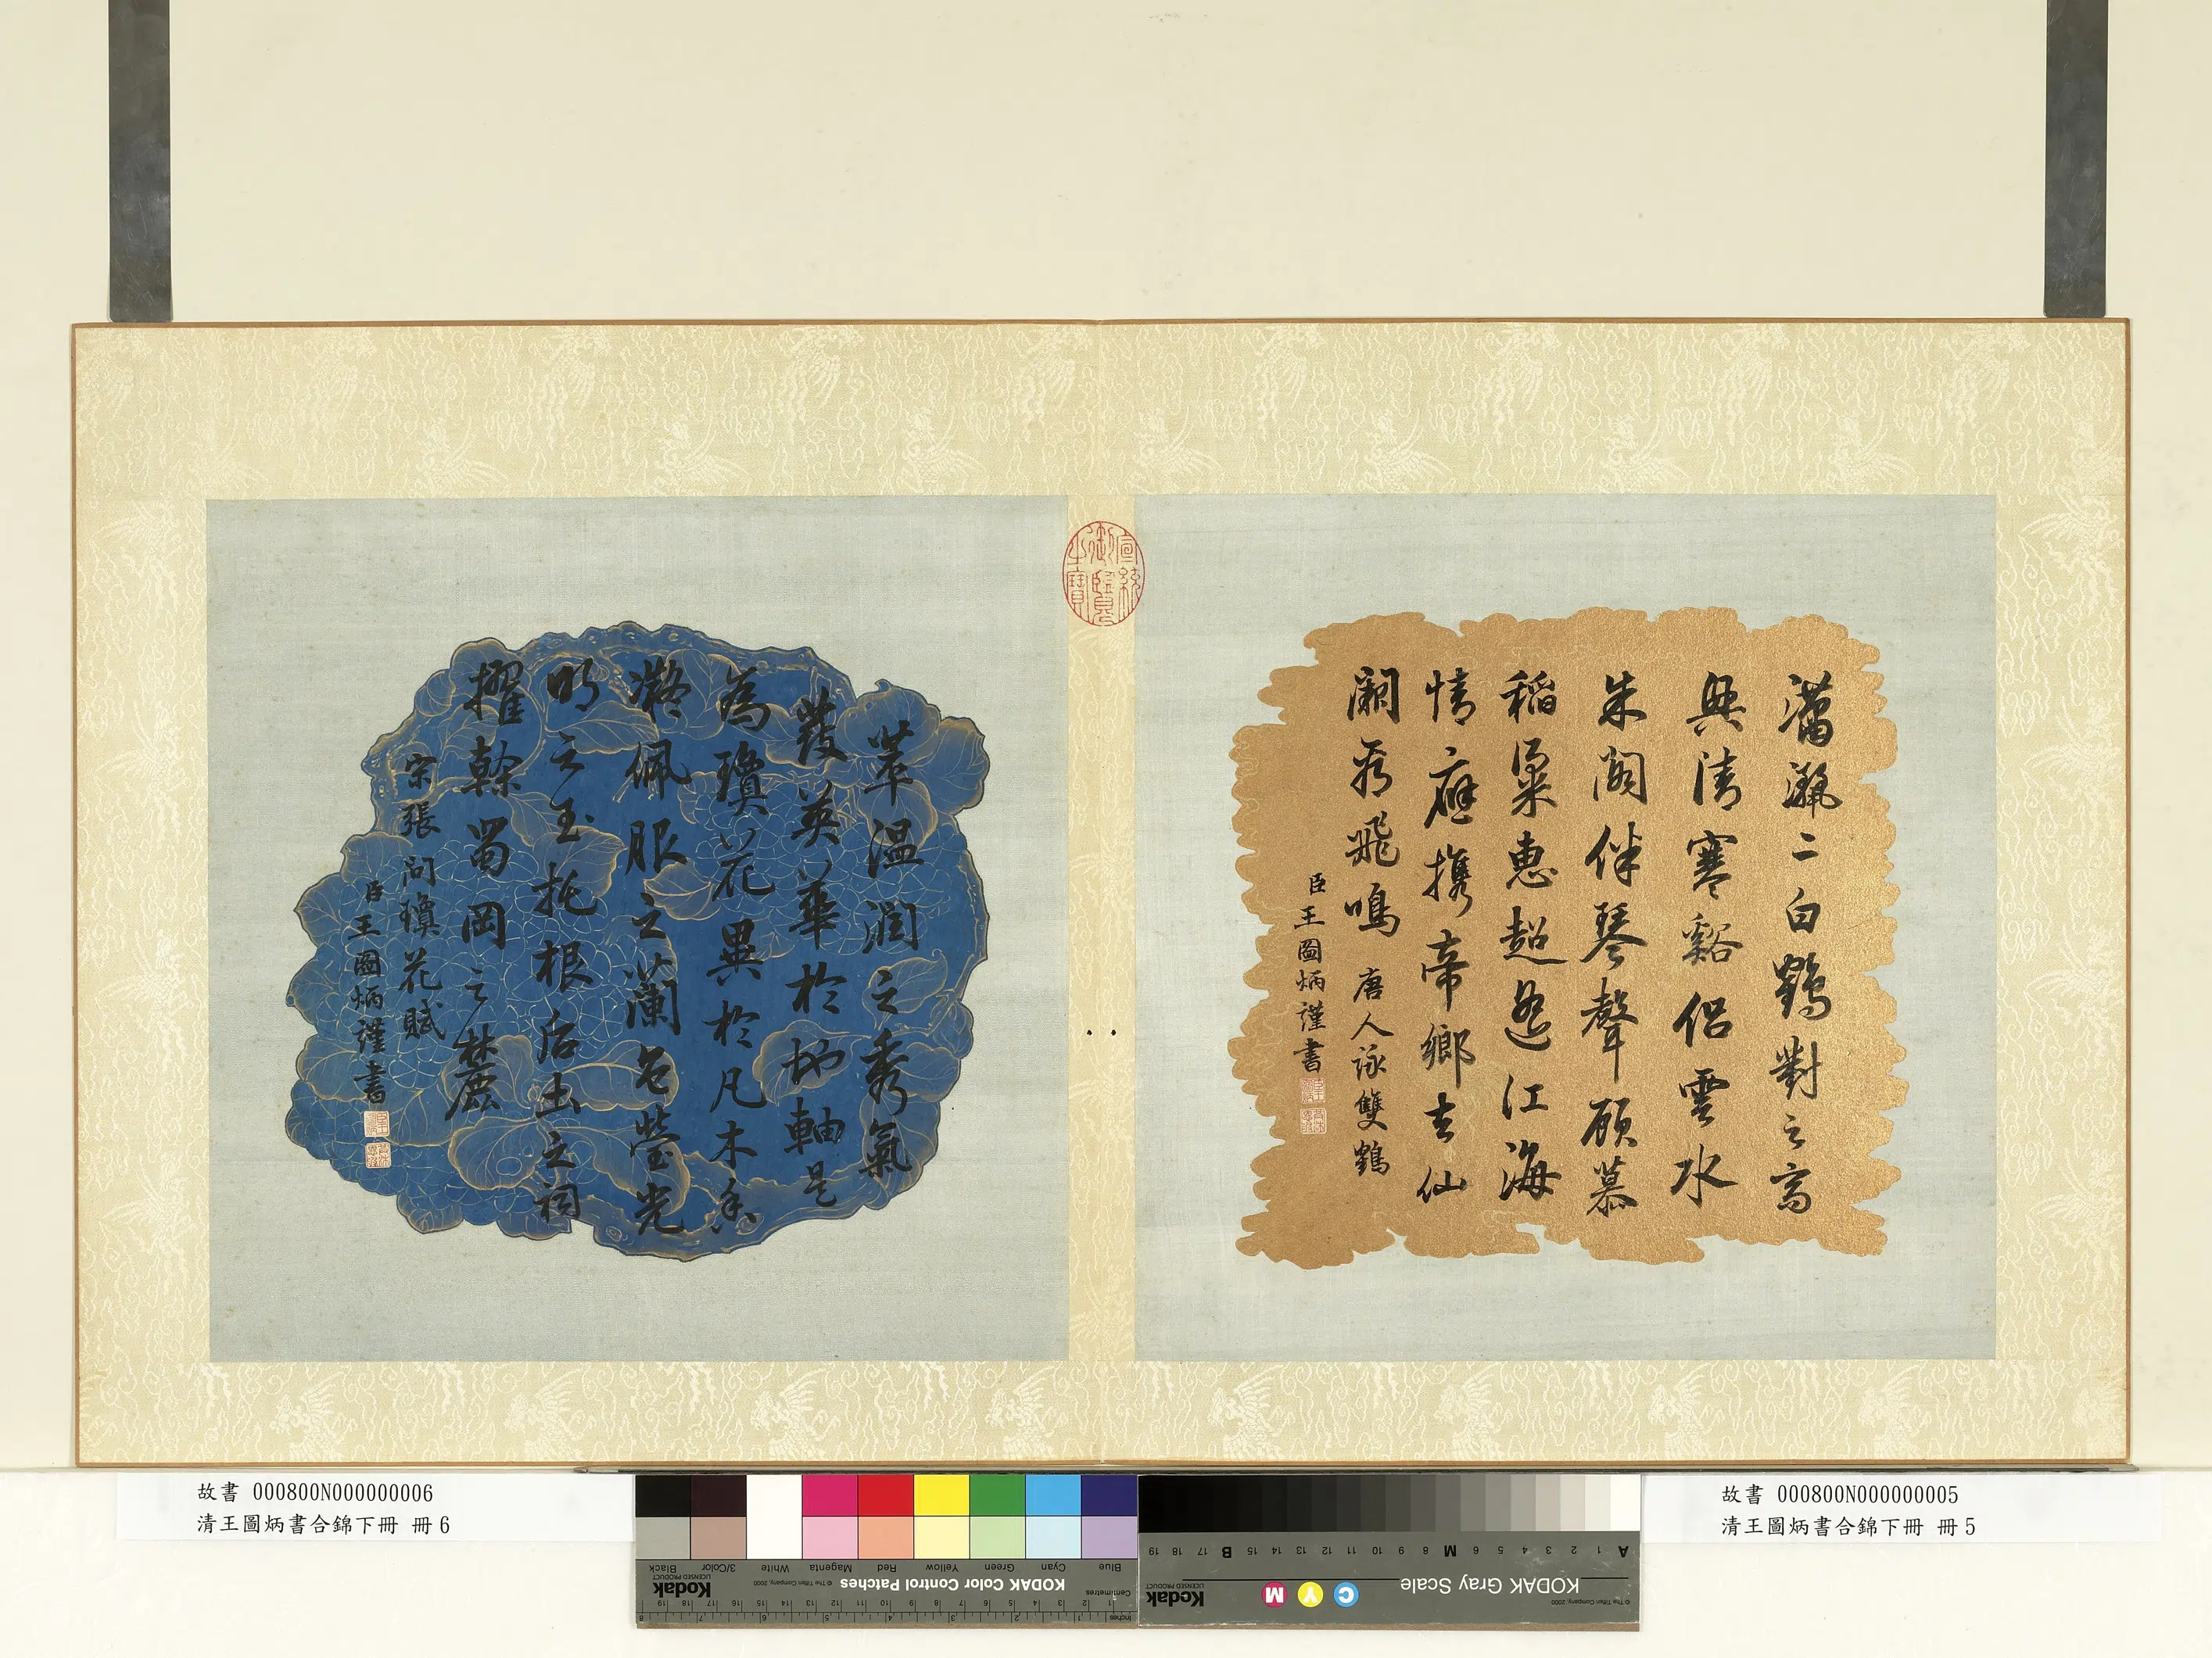 瀟灑二白鶴對之高
興清寒谿侣雲水
朱閣伴琴聲顧慕
稻粱惠超遥江海
情應携帝鄉去仙
闕看飛鳴 唐人詠雙鶴
臣王圖炳謹書
萃温潤之秀氣
發英華於地軸是
為瓊花異於凡木香
凝佩服之蘭色瑩光
明之玉托根后土之祠
擢榦蜀岡之麓
宋張問瓊花賦
臣王圖炳謹書
宣統御覽之寶
故書 000800N000000006
清王圖炳書合錦下冊 冊6
故書 000800N000000005
清王圖炳書合錦下冊 冊5
Blue Cyan Green Yellow Red Magenta White 3/Color Black
KODAK Color Control Patches
© The Tiffen Company, 2000
Kodak
LICENSED PRODUCT
Centimetres
Inches
KODAK Gray Scale
C Y M
Kodak
LICENSED PRODUCT
© The Tiffen Company, 2000
A 1 2 3 4 5 6 M 8 9 10 11 12 13 14 15 B 17 18 19